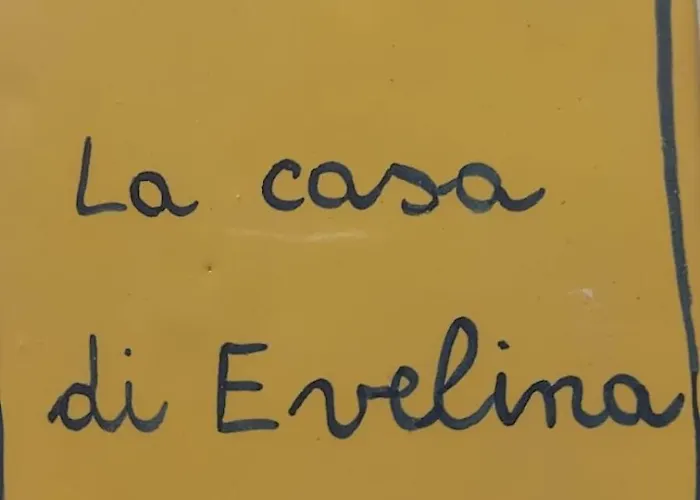 La casa
di Evelina